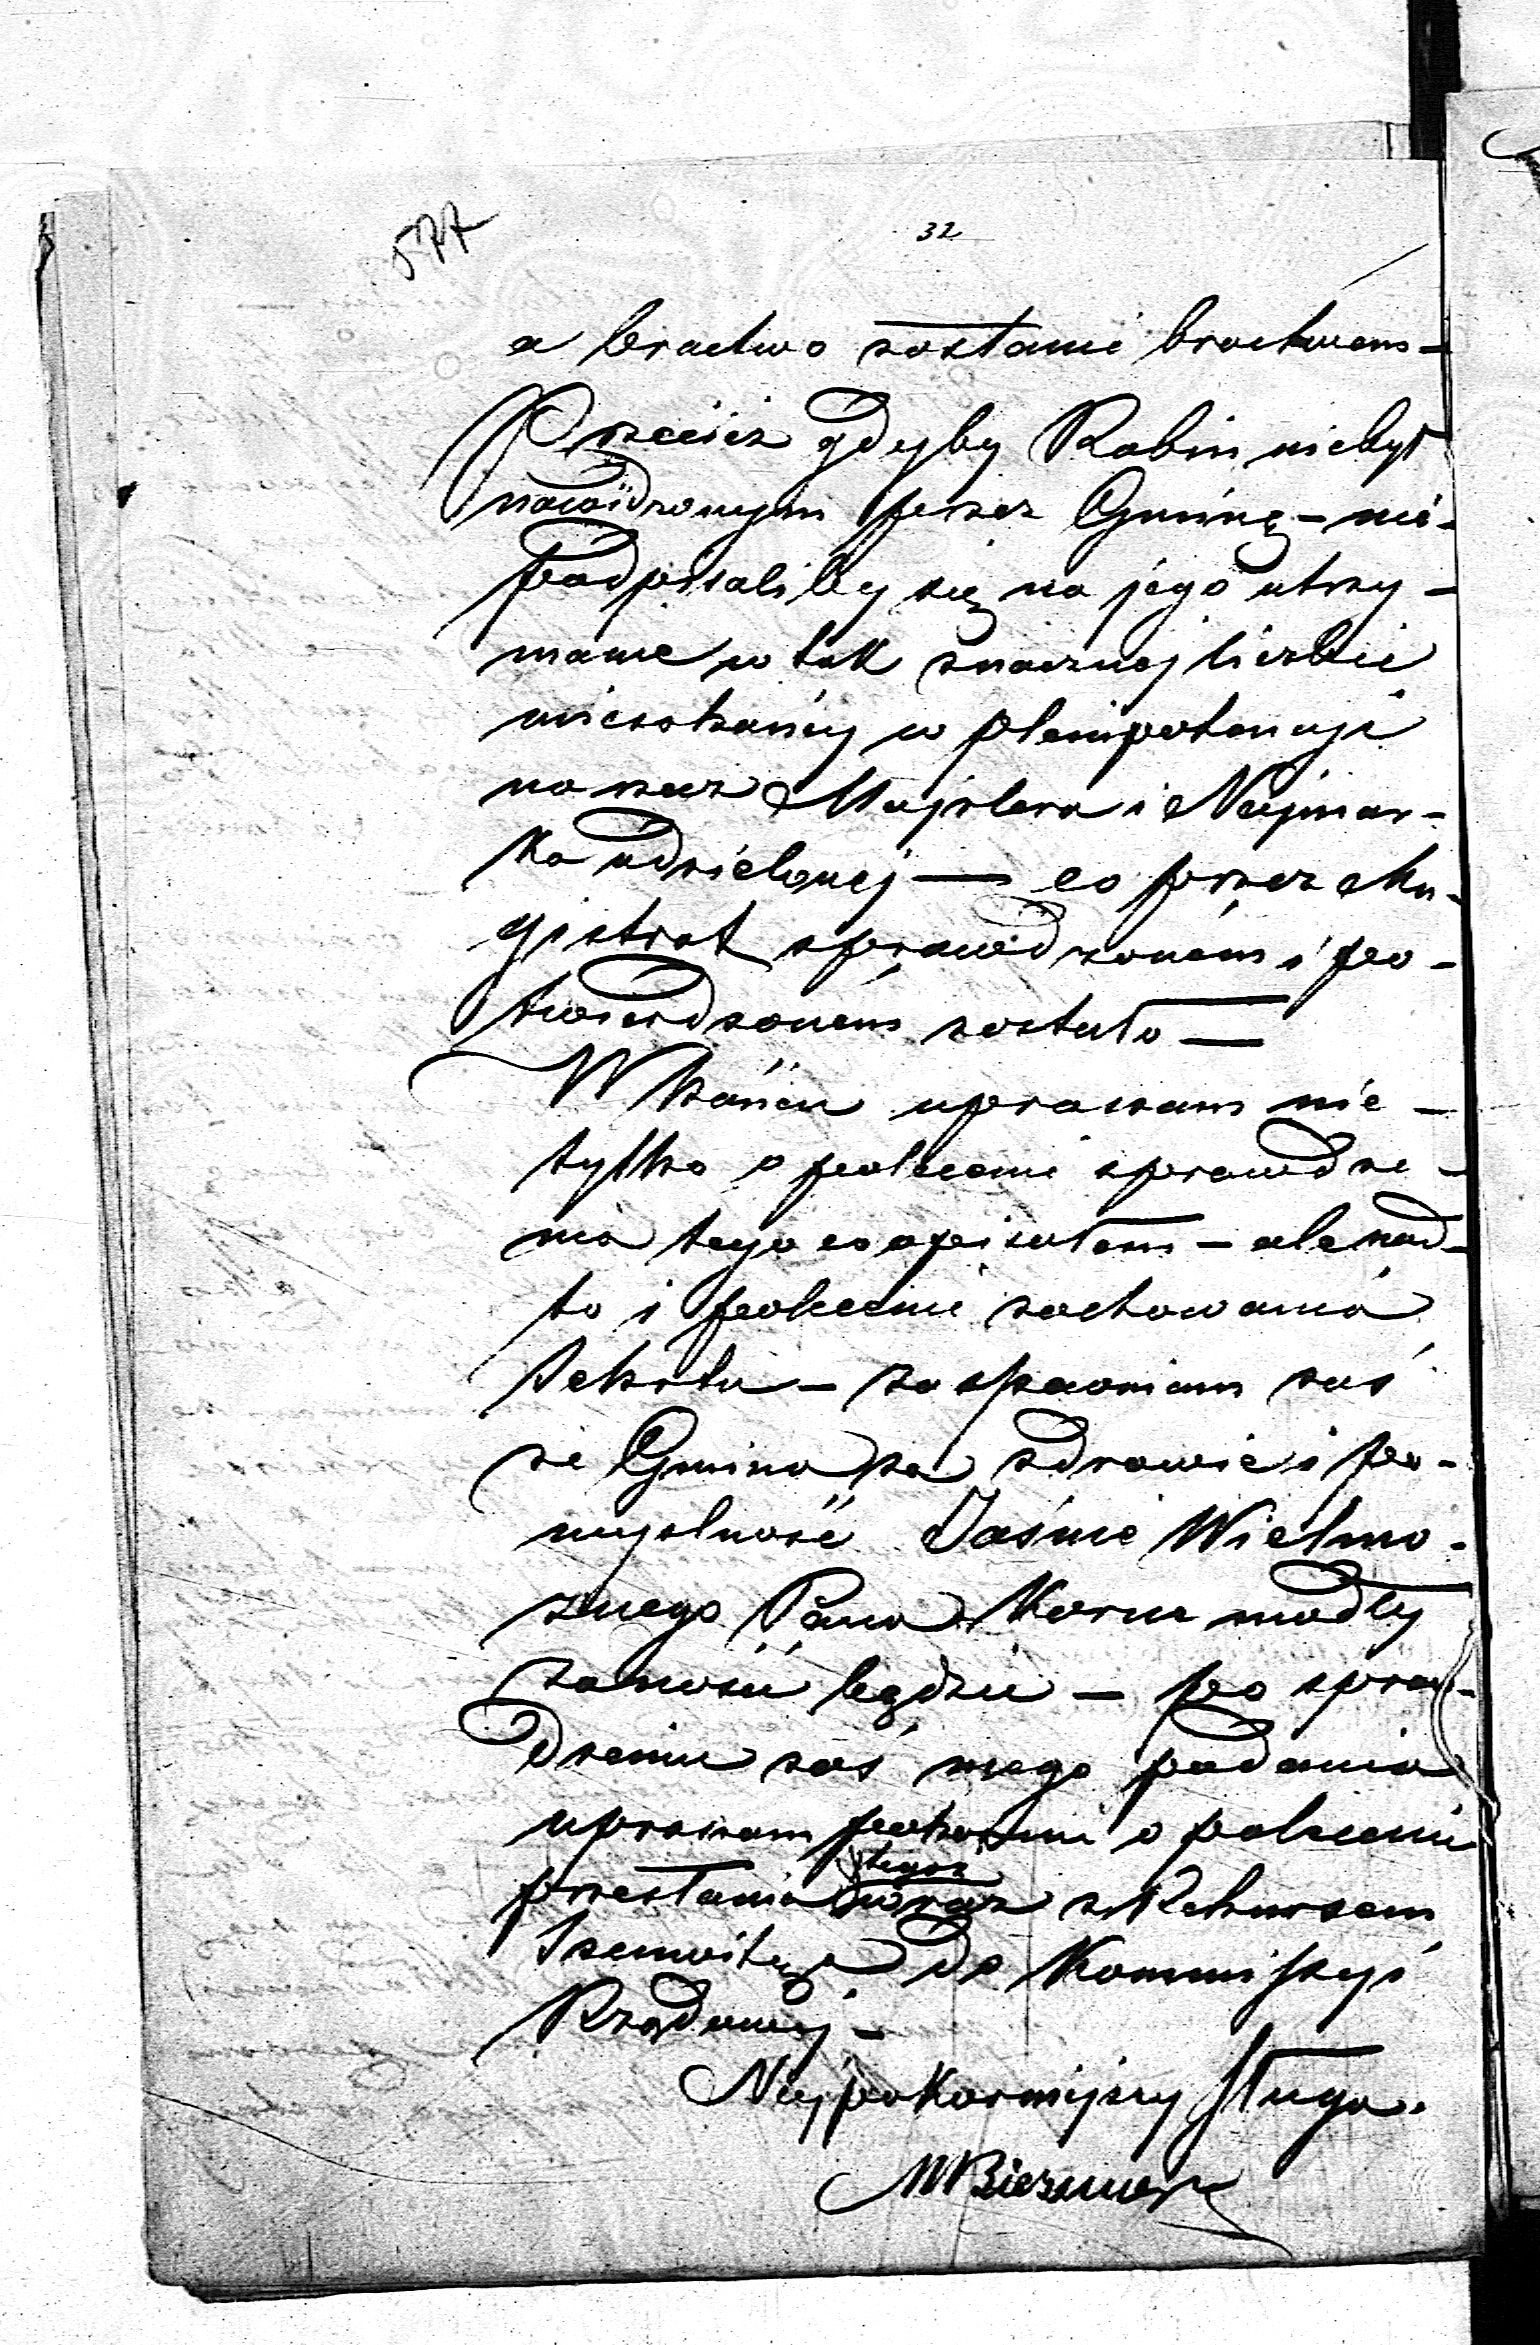 577
32
a bractwo zostanie bractwem -
Przecież gdyby Rabin niebył
nawidzonym przez Gminę - nie-
podpisaliby się na jego utrzy -
manie w tak znacznej liczbie
mieszkańcy w plenipotencyi
na rzecz Majzlera i Najmar -
ka udzielonej — co przez Ma -
gistrat sprawdzonem i po -
twierdzonem zostało —
W końcu upraszam nie -
tylko o polecenie sprawdze -
nia tego co opisałem - ale nad -
to i polecenie zachowania
sekretu - zapewniam zaś
że Gmina za zdrowie i po -
myślność Jaśnie Wielmo -
żnego Pana Korne modły
zanosić będzie - po spraw -
dzeniu zaś mego podania
upraszam pokornie o polecenie
tegoż
przesłania wraz z Rekursem
do Kommissyi
Rządowej -
Najpokorniejszy sługa.